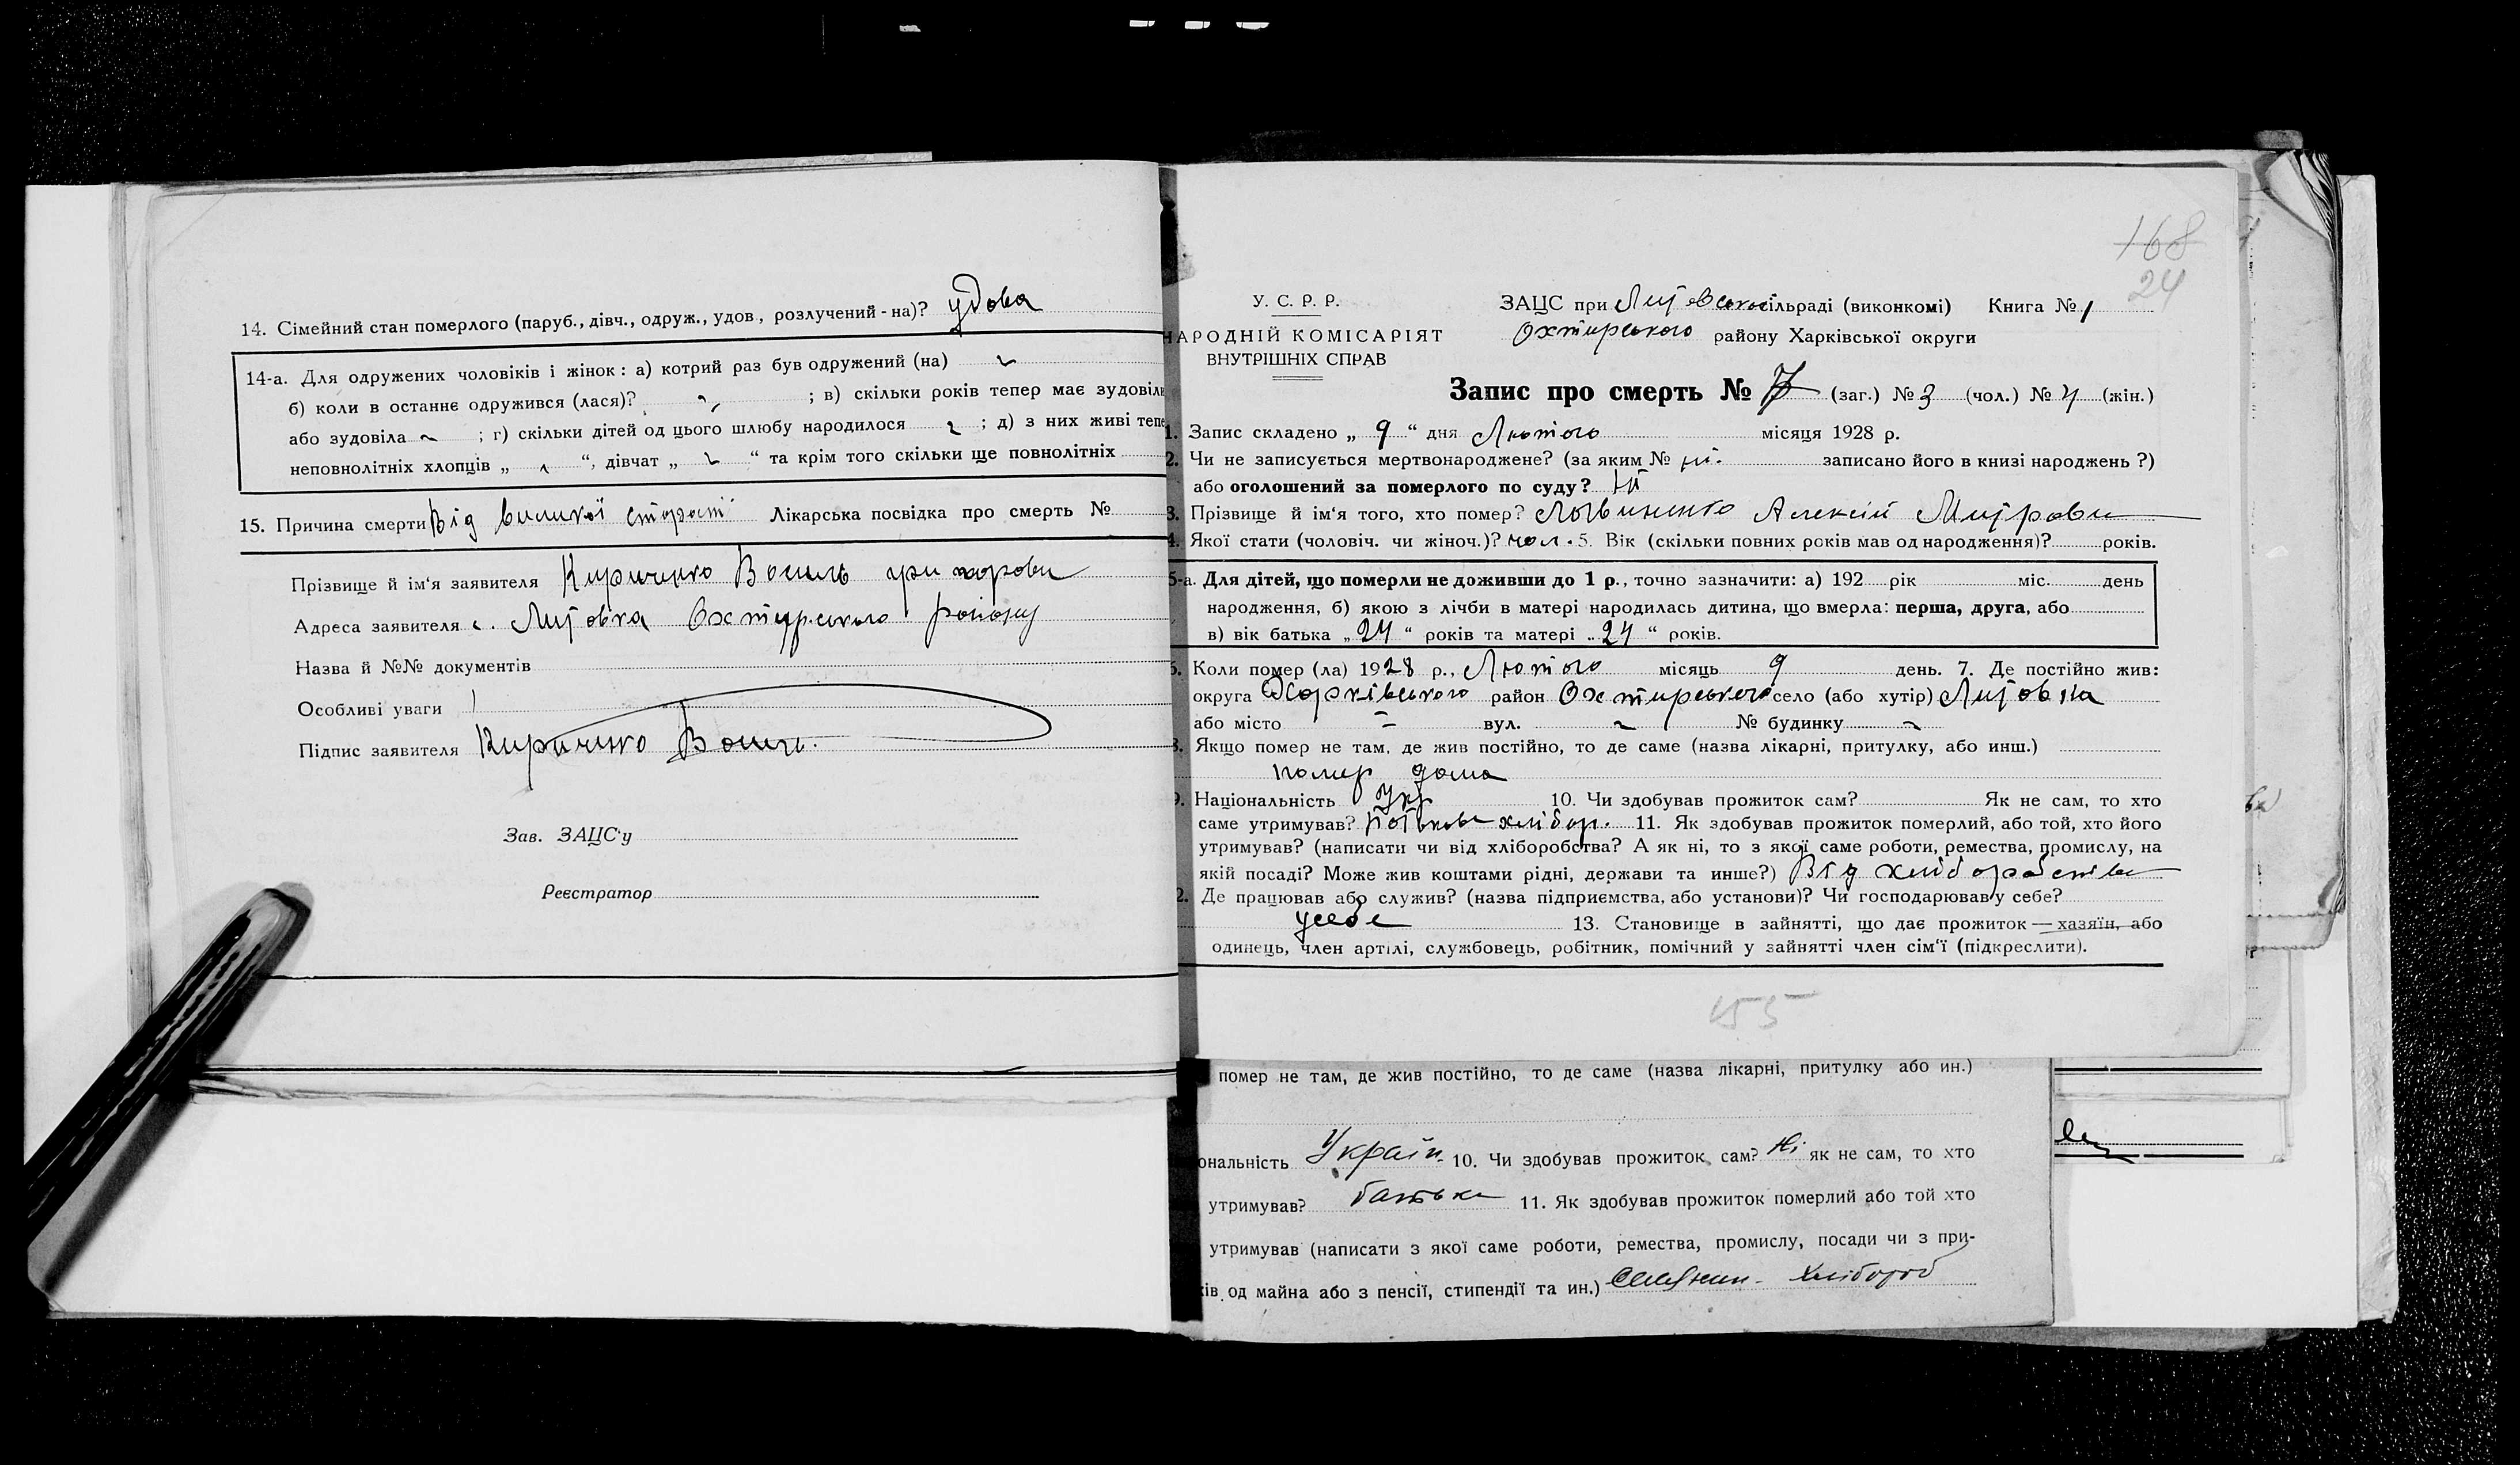 14. Сімейний стан померлого (паруб., дівч., одруж., удов., розлучений - на)? удова
14-а. Для одружених чоловіків і жінок: а) котрий раз був одружений (на)
б) коли в останнє одружився (лася)? ; в) скільки років тепер має зудовіли
або зудовіла ; г) скільки дітей од цього шлюбу народилося ; д) з них живі тепе
неповнолітніх хлопців „ “, дівчат „ “ та крім того скільки ще повнолітніх
15. Причина смерти Від великої старості Лікарська посвідка про смерть №
Прізвище й ім‘я заявителя Кириченко Василь григорови
Адреса заявителя с. Литовка Охтирського району
Назва й №№ документів
Особливі уваги
Підпис заявителя Кириченко Василь.
Зав. ЗАЦС‘у
Реєстратор
168
24
У. С. Р. Р.
НАРОДНІЙ КОМІСАРІЯТ
ВНУТРІШНІХ СПРАВ
ЗАЦС при Литовської сільраді (виконкомі) Книга № 1
Охтирського району Харківської округи
Запис про смерть № 7 (заг.) № 3 (чол.) № 4 (жін.)
1. Запис складено „ 9 “ дня Лютого місяця 1928 р.
2. Чи не записується мертвонароджене? (за яким № ні. записано його в книзі народжень ?)
або оголошений за померлого по суду? Ні
3. Прізвище й ім‘я того, хто помер? Логвиненко Алексій Митрови
4. Якої стати (чоловіч. чи жіноч.)? чол. 5. Вік (скільки повних років мав од народження)? років.
5-а. Для дітей, що померли не доживши до 1 р., точно зазначити: а) 192 рік міс. день
народження, б) якою з лічби в матері народилась дитина, що вмерла: перша, друга, або
в) вік батька „ 24 “ років та матері „ 24 “ років.
6. Коли помер (ла) 1928 р., Лютого місяць 9 день. 7. Де постійно жив:
округа Харківського район Охтирського село (або хутір) Литовка
або місто вул. № будинку
8. Якщо помер не там, де жив постійно, то де саме (назва лікарні, притулку, або инш.)
помер дома
9. Національність Укр 10. Чи здобував прожиток сам? Як не сам, то хто
саме утримував? батьки хлібор. 11. Як здобував прожиток померлий, або той, хто його
утримував? (написати чи від хліборобства? А як ні, то з якої саме роботи, ремества, промислу, на
якій посаді? Може жив коштами рідні, держави та инше?) Від хліборобства
12. Де працював або служив? (назва підприємства, або установи)? Чи господарював у себе?
усебе 13. Становище в зайнятті, що дає прожиток — хазяїн, або
одинець, член артілі, службовець, робітник, помічний у зайнятті член сім‘ї (підкреслити).
155
помер не там, де жив постійно, то де саме (назва лікарні, притулку або ин.)
ональність Україн. 10. Чи здобував прожиток сам? Ні як не сам, то хто
утримував? батьки 11. Як здобував прожиток померлий або той хто
утримував (написати з якої саме роботи, ремества, промислу, посади чи з при-
ків од майна або з пенсії, стипендії та ин.) Селянин - хлібороб